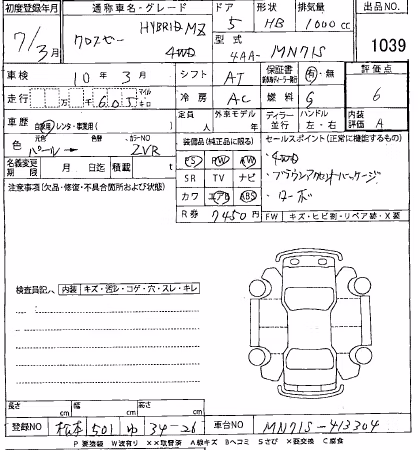 初度登録年月 通称車名・グレード ドア 形状 排気量 出品NO
7/3月 クロスビー HYBRID MZ 4WD 5 HB 1000cc
型式 4AA- MN71S 1039
車検 10年3月 シフト AT 保証書 有・無 評価点
走行 万 千 605 マイル キロ 冷房 AC 燃料 G 6
車歴 自家用・レンタ・事業用( ) 定員 外車モデル 年 ディーラー 並行 ハンドル 左・右 内装評価 A
色 元色 パール→ 色替 カラーNO ZVR 装備品(純正品に限る) セールスポイント(正常に機能するもの)
名義変更期限 月 日迄 積載 t PS PW AW ・4WD
注意事項(欠品・修復・不具合箇所および状態) SR TV ナビ ・ブラウンアクセントパッケージ
カワ エアB ABS ・ターボ
R券 7450円 FW キズ・ヒビ割・リペア跡・X要
検査員記入 内装 キズ・汚レ・コゲ・穴・スレ・キレ
長さ cm 幅 cm 高さ cm
登録NO 松本 501 ゆ 34-26 車台NO MN71S-413304
P 要塗装 W波有り ××取替済 A線キズ Bヘコミ Sさび ×要交換 C腐食